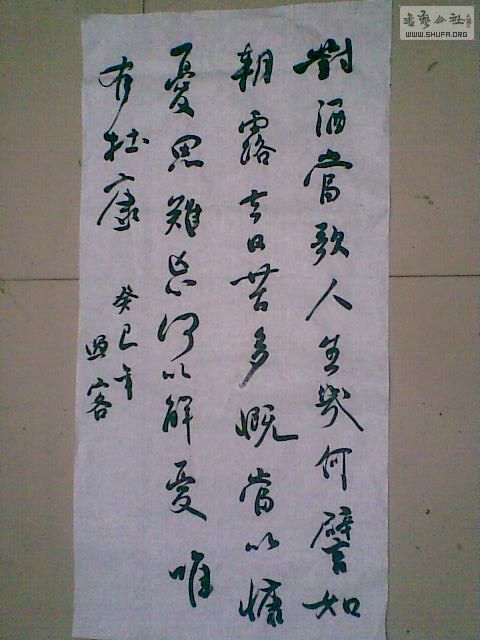 對酒當歌人生幾何譬如
朝露去日苦多慨當以慷
憂思難忘何以解憂唯
有杜康
癸巳年
山客
書藝公社
WWW.SHUFA.ORG